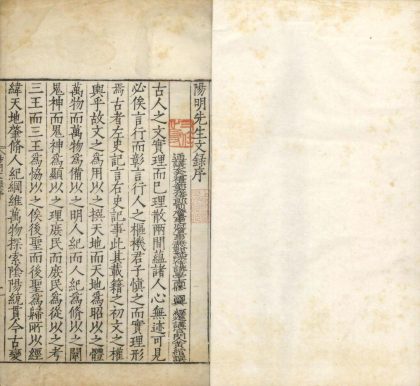 陽明先生文録序
古人之文實理而已理散兩間蘊諸人心無迹可見
必俟言行而彰言行人之樞機君子慎之而實理形
焉古者左史記言右史記事此其載籍之初文之權
輿乎故文之為用以之撰天地而天地為昭以之體
萬物而萬物為備以之明人紀而人紀為脩以之闡
鬼神而鬼神為顯以之理庶民而庶民為從以之考
三王而三王為恊以之俟後聖而後聖為歸所以經
緯天地肇脩人紀綱維萬物探索陰陽統貫今古變